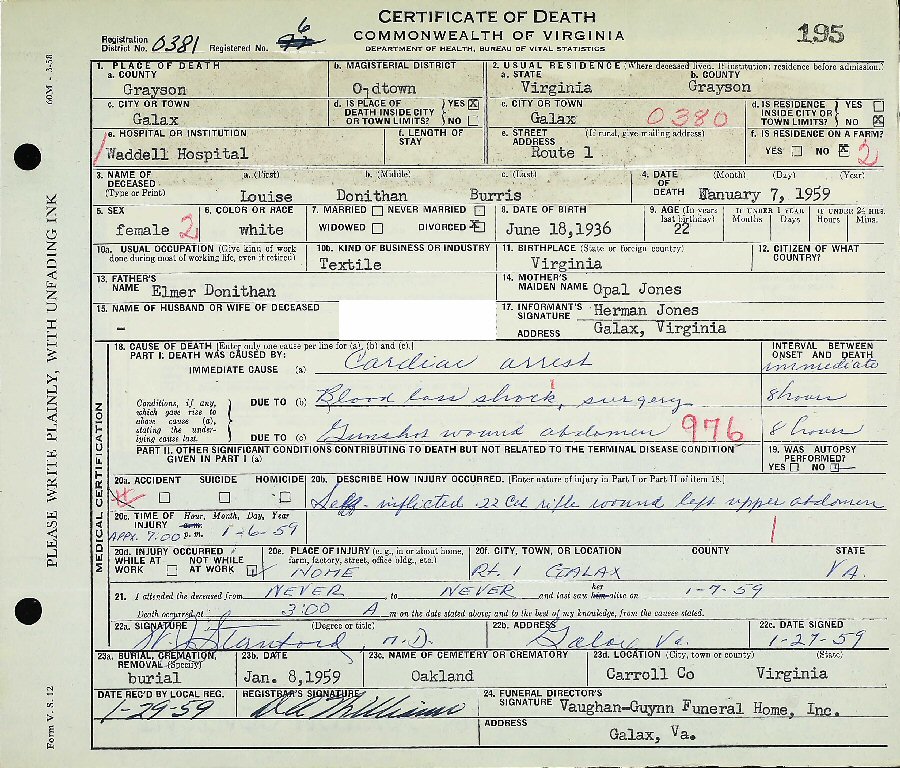 CERTIFICATE OF DEATH
COMMONWEALTH OF VIRGINIA
DEPARTMENT OF HEALTH, BUREAU OF VITAL STATISTICS
195
Registration District No. 0381 Registered No. 6
1. PLACE OF DEATH
a. COUNTY
Grayson
b. MAGISTERIAL DISTRICT
Oldtown
2. USUAL RESIDENCE (Where deceased lived. If institution: residence before admission.)
a. STATE
Virginia
b. COUNTY
Grayson
c. CITY OR TOWN
Galax
d. IS PLACE OF DEATH INSIDE CITY OR TOWN LIMITS? YES X NO
c. CITY OR TOWN
Galax
0380
d. IS RESIDENCE INSIDE CITY OR TOWN LIMITS? YES NO X
e. HOSPITAL OR INSTITUTION
Waddell Hospital
f. LENGTH OF STAY
e. STREET ADDRESS (If rural, give mailing address)
Route 1
f. IS RESIDENCE ON A FARM?
YES NO X 2
3. NAME OF DECEASED (Type or Print)
a. (First) b. (Middle) c. (Last)
Louise Donithan Burris
4. DATE OF DEATH (Month) (Day) (Year)
January 7, 1959
5. SEX
female 2
6. COLOR OR RACE
white
7. MARRIED NEVER MARRIED
WIDOWED DIVORCED X
8. DATE OF BIRTH
June 18,1936
9. AGE (In years last birthday)
22
IF UNDER 1 YEAR
Months Days
IF UNDER 24 HRS.
Hours Mins.
10a. USUAL OCCUPATION (Give kind of work done during most of working life, even if retired)
10b. KIND OF BUSINESS OR INDUSTRY
Textile
11. BIRTHPLACE (State or foreign country)
Virginia
12. CITIZEN OF WHAT COUNTRY?
13. FATHER'S NAME Elmer Donithan
14. MOTHER'S MAIDEN NAME Opal Jones
15. NAME OF HUSBAND OR WIFE OF DECEASED
-
17. INFORMANT'S SIGNATURE Herman Jones
ADDRESS Galax, Virginia
18. CAUSE OF DEATH [Enter only one cause per line for (a), (b) and (c).]
PART I. DEATH WAS CAUSED BY:
IMMEDIATE CAUSE (a) Cardiac arrest
INTERVAL BETWEEN ONSET AND DEATH
immediate
Conditions, if any, which gave rise to above cause (a), stating the underlying cause last.
DUE TO (b) Blood loss shock, surgery
8 hours
DUE TO (c) Gunshot wound abdomen 976
8 hours
PART II. OTHER SIGNIFICANT CONDITIONS CONTRIBUTING TO DEATH BUT NOT RELATED TO THE TERMINAL DISEASE CONDITION GIVEN IN PART I (a)
19. WAS AUTOPSY PERFORMED?
YES NO
20a. ACCIDENT SUICIDE HOMICIDE
20b. DESCRIBE HOW INJURY OCCURRED. [Enter nature of injury in Part I or Part II of item 18.]
Self-inflicted .22 Cal rifle wound left upper abdomen
20c. TIME OF INJURY Hour, Month, Day, Year
Appx. 7:00 a.m. p.m. 1-6-59
20d. INJURY OCCURRED
WHILE AT WORK NOT WHILE AT WORK
20e. PLACE OF INJURY (e.g., in or about home, farm, factory, street, office bldg., etc.)
HOME
20f. CITY, TOWN, OR LOCATION COUNTY STATE
Rt 1 GALAX VA.
21. I attended the deceased from NEVER to NEVER and last saw her him alive on 1-7-59
Death occurred at 3:00 A m on the date stated above; and to the best of my knowledge, from the causes stated.
22a. SIGNATURE (Degree or title)
M.D.
22b. ADDRESS
Galax Va.
22c. DATE SIGNED
1-27-59
23a. BURIAL, CREMATION, REMOVAL (Specify)
burial
23b. DATE
Jan. 8,1959
23c. NAME OF CEMETERY OR CREMATORY
Oakland
23d. LOCATION (City, town or county) (State)
Carroll Co Virginia
DATE REC'D BY LOCAL REG.
1-29-59
REGISTRAR'S SIGNATURE
24. FUNERAL DIRECTOR'S SIGNATURE Vaughan-Guynn Funeral Home, Inc.
ADDRESS
Galax, Va.
60M - 3-58
PLEASE WRITE PLAINLY, WITH UNFADING INK
MEDICAL CERTIFICATION
Form V. S. 12